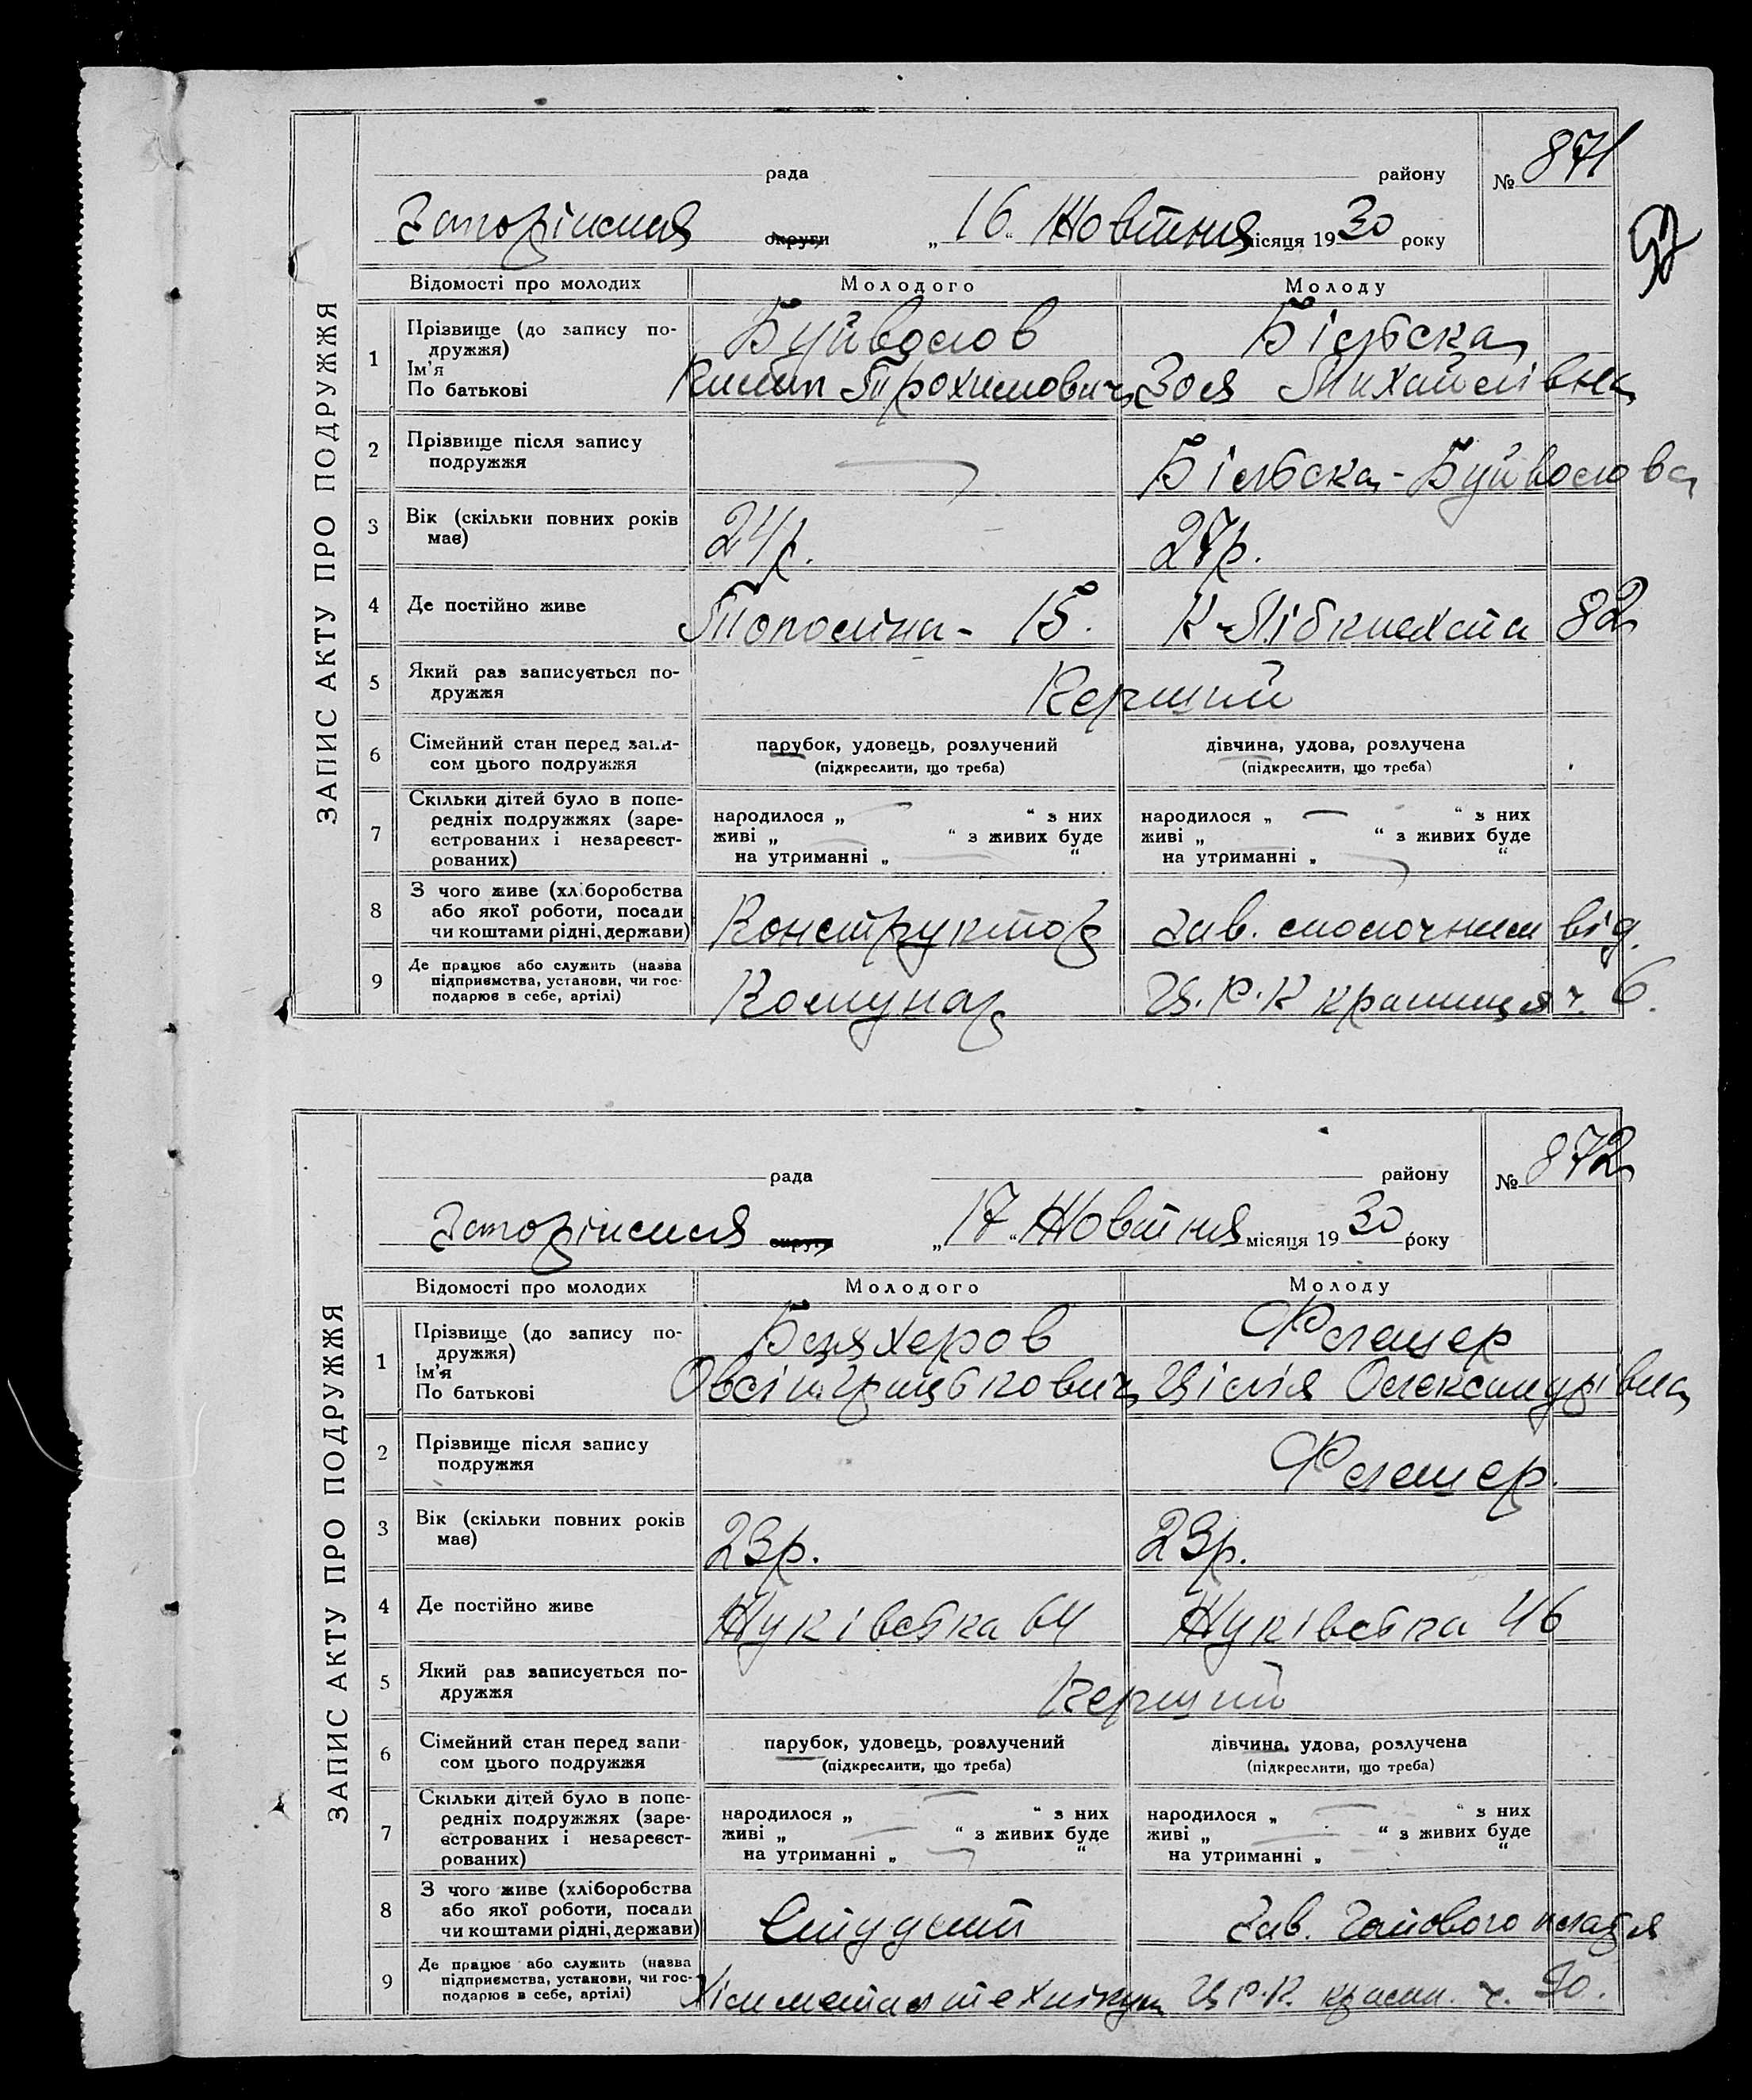 ЗАПИС АКТУ ПРО ПОДРУЖЖЯ
рада району № 871
Запоріжжя округи „16“ Жовтня місяця 1930 року
97
Відомості про молодих Молодого Молоду
1 Прізвище (до запису по-
дружжя)
Ім'я
По батькові
Буйволов
Трохимович
Більска
Зоя Михайлівна
2 Прізвище після запису
подружжя
Більска-Буйволова
3 Вік (скільки повних років
має)
24р.
27р.
4 Де постійно живе
Тополина - 15.
К-Лібкнехта 82
5 Який раз записується по-
дружжя
Перший
6 Сімейний стан перед запи-
сом цього подружжя
парубок, удовець, розлучений
(підкреслити, що треба)
дівчина, удова, розлучена
(підкреслити, що треба)
7 Скільки дітей було в попе-
редніх подружжях (заре-
єстрованих і незареєст-
рованих)
народилося „ “ з них
живі „ “ з живих буде
на утриманні „ “
народилося „ “ з них
живі „ “ з живих буде
на утриманні „ “
8 З чого живе (хліборобства
або якої роботи, посади
чи коштами рідні, держави)
Конструктор
Зав. молочним від.
9 Де працює або служить (назва
підприємства, установи, чи гос-
подарює в себе, артілі)
Комунар
Ц.Р.К крамниця ч. 6.
ЗАПИС АКТУ ПРО ПОДРУЖЖЯ
рада району № 872
Запоріжжя округи „17“ Жовтня місяця 1930 року
Відомості про молодих Молодого Молоду
1 Прізвище (до запису по-
дружжя)
Ім'я
По батькові
Овсій Грицькович
Флешер
Цілія Олександрівна
2 Прізвище після запису
подружжя
Флешер.
3 Вік (скільки повних років
має)
23р.
23р.
4 Де постійно живе
Жуківська 64
Жуківська 46
5 Який раз записується по-
дружжя
Перший
6 Сімейний стан перед запи-
сом цього подружжя
парубок, удовець, розлучений
(підкреслити, що треба)
дівчина, удова, розлучена
(підкреслити, що треба)
7 Скільки дітей було в попе-
редніх подружжях (заре-
єстрованих і незареєст-
рованих)
народилося „ “ з них
живі „ “ з живих буде
на утриманні „ “
народилося „ “ з них
живі „ “ з живих буде
на утриманні „ “
8 З чого живе (хліборобства
або якої роботи, посади
чи коштами рідні, держави)
Студент
Зав.
9 Де працює або служить (назва
підприємства, установи, чи гос-
подарює в себе, артілі)
Ц.Р.К. крамн. ч. 30.